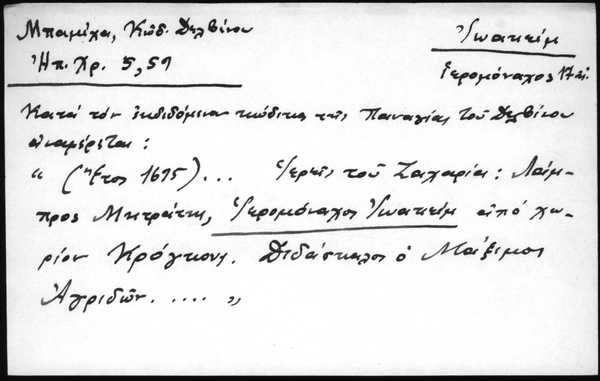 Μπαμίχα, Κώδ. Δελβίνου
Ἠπ. Χρ. 5, 59
Ἰωακείμ
Ἱερομόναχος 17 αἰ.
Κατά τόν ἐκδιδόμενον κώδικα τῆς Παναγίας τοῦ Δελβίνου
ἀναφέρεται:
“ (Ἔτος 1695)... Ἱερεῖς τοῦ Ζαχαρία: Λάμ-
προς Μητράκης, Ἱερομόναχος Ἰωακείμ ἀπό χω-
ρίον Κρόγκους. Διδάσκαλος ὁ Μάξιμος
Ἀγριδῶν. .... ”